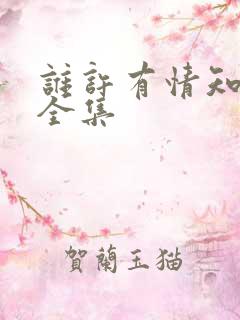 誰許有情知
全集
賀蘭玉猫